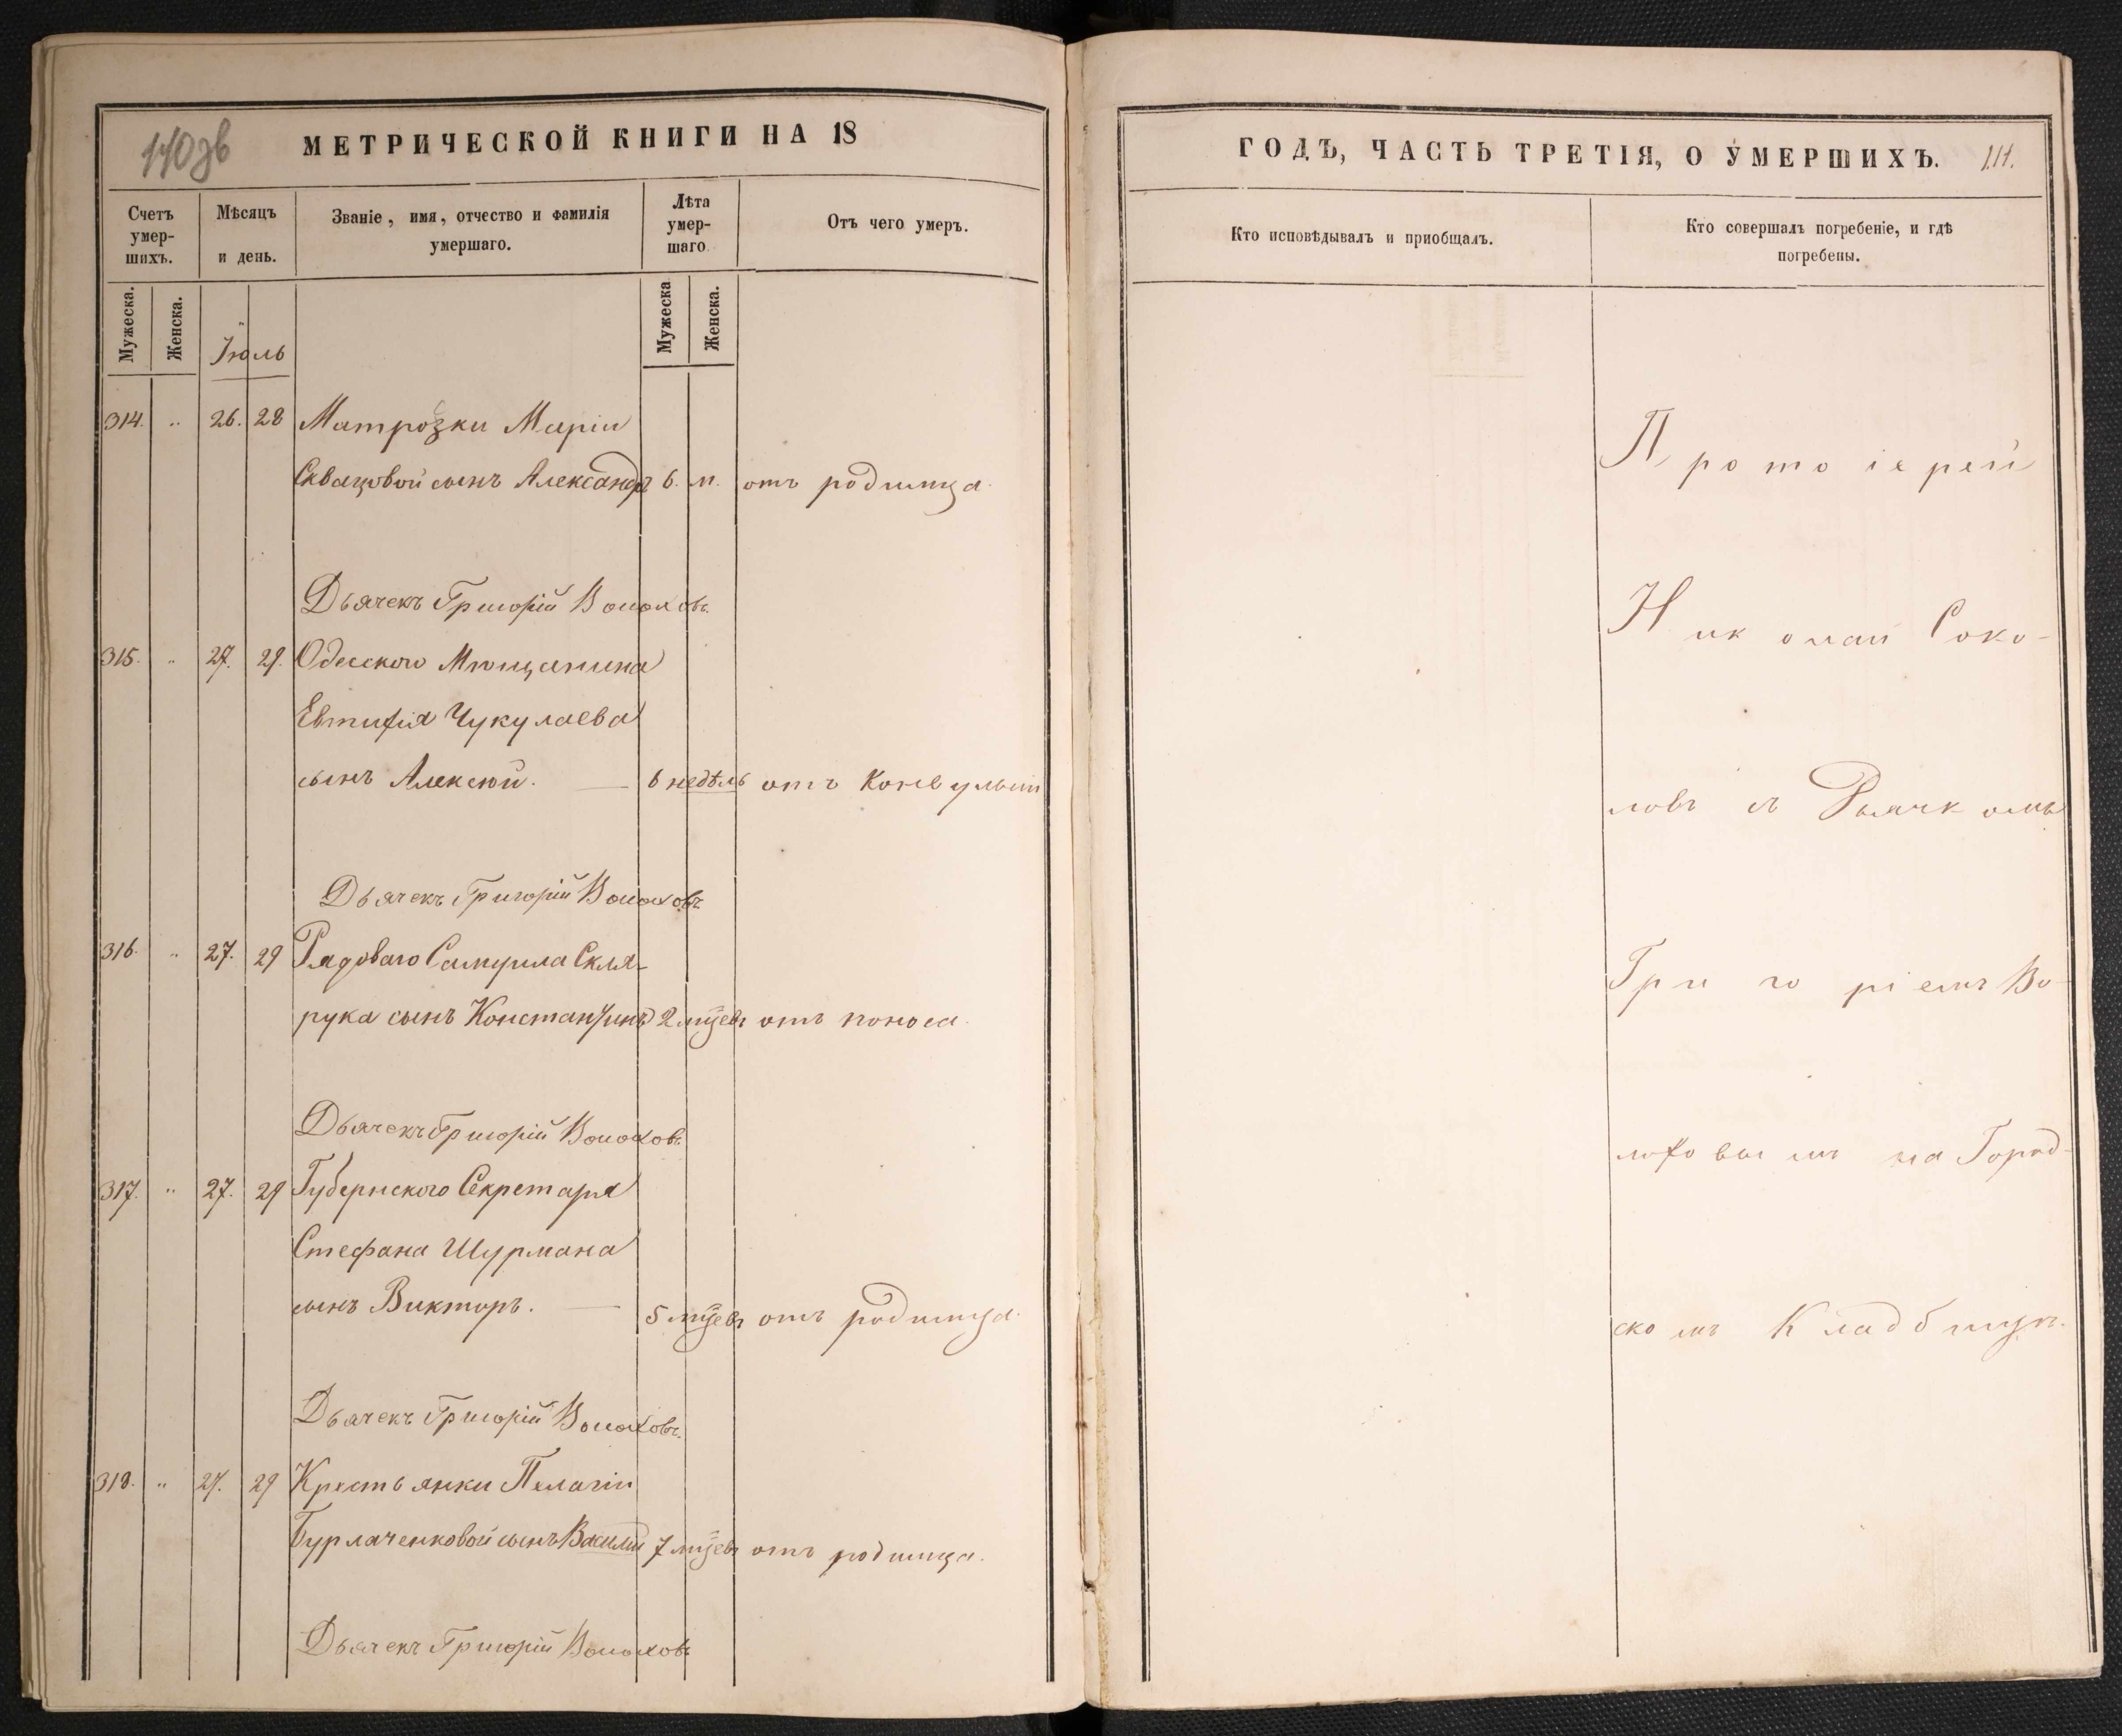 140зв
МЕТРИЧЕСКОЙ КНИГИ НА 18
Счетъ умер-шихъ.
Мѣсяцъ и день.
Званіе, имя, отчество и фамилія умершаго.
Лѣта умер-шаго
Отъ чего умеръ.
Мужеска.
Женска.
Іюль
Мужеска
Женска.
314. „ 26. 28 Матрозки Маріи
сынъ Александръ 6. м. отъ родимца.
Дьячекъ Григорій Волоховъ.
315. „ 27. 29. Одесскаго Мѣщанина
Евтифія Чукулаева
сынъ Алексѣй. — 6 недѣль отъ Конвульсіи
Дьячекъ Григорій Волоховъ
316. „ 27. 29 Рядоваго Самуила Скля-
рука сынъ Константинъ 2 мцевъ отъ поноса.
Дьячекъ Григорій Волоховъ
317. „ 27. 29 Губернского Секретаря
Стефана Шурмана
сынъ Викторъ. — 5 мцевъ отъ родимца.
Дьячекъ Григорій Волоховъ.
318. „ 27. 29 Крестьянки Пелагіи
Бурлаченковой сынъ Василій 7 мцевъ отъ родимца.
Дьячекъ Григорій Волоховъ
ГОДЪ, ЧАСТЬ ТРЕТІЯ, О УМЕРШИХЪ.
Кто исповѣдывалъ и приобщалъ.
Кто совершалъ погребеніе, и гдѣ
погребены.
Протоіерей
Николай Соко-
ловъ съ Дьячкомъ
Григоріемъ Во-
лоховымъ на Город-
скомъ Кладбищѣ.